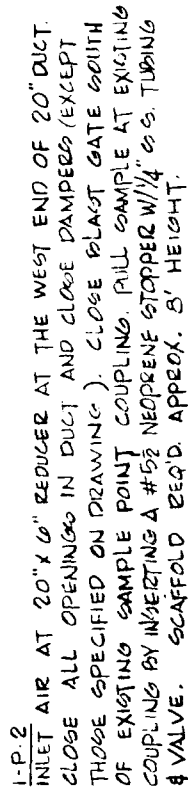 1-P.2
INLET AIR AT 20" X 6" REDUCER AT THE WEST END OF 20" DUCT.
CLOSE ALL OPENINGS IN DUCT AND CLOSE DAMPERS (EXCEPT
THOSE SPECIFIED ON DRAWING). CLOSE BLAST GATE SOUTH
OF EXISTING SAMPLE POINT COUPLING. PULL SAMPLE AT EXISTING
COUPLING BY INSERTING A #5½ NEOPRENE STOPPER W/¼" S.S. TUBING
& VALVE. SCAFFOLD REQ'D. APPROX. 8' HEIGHT.